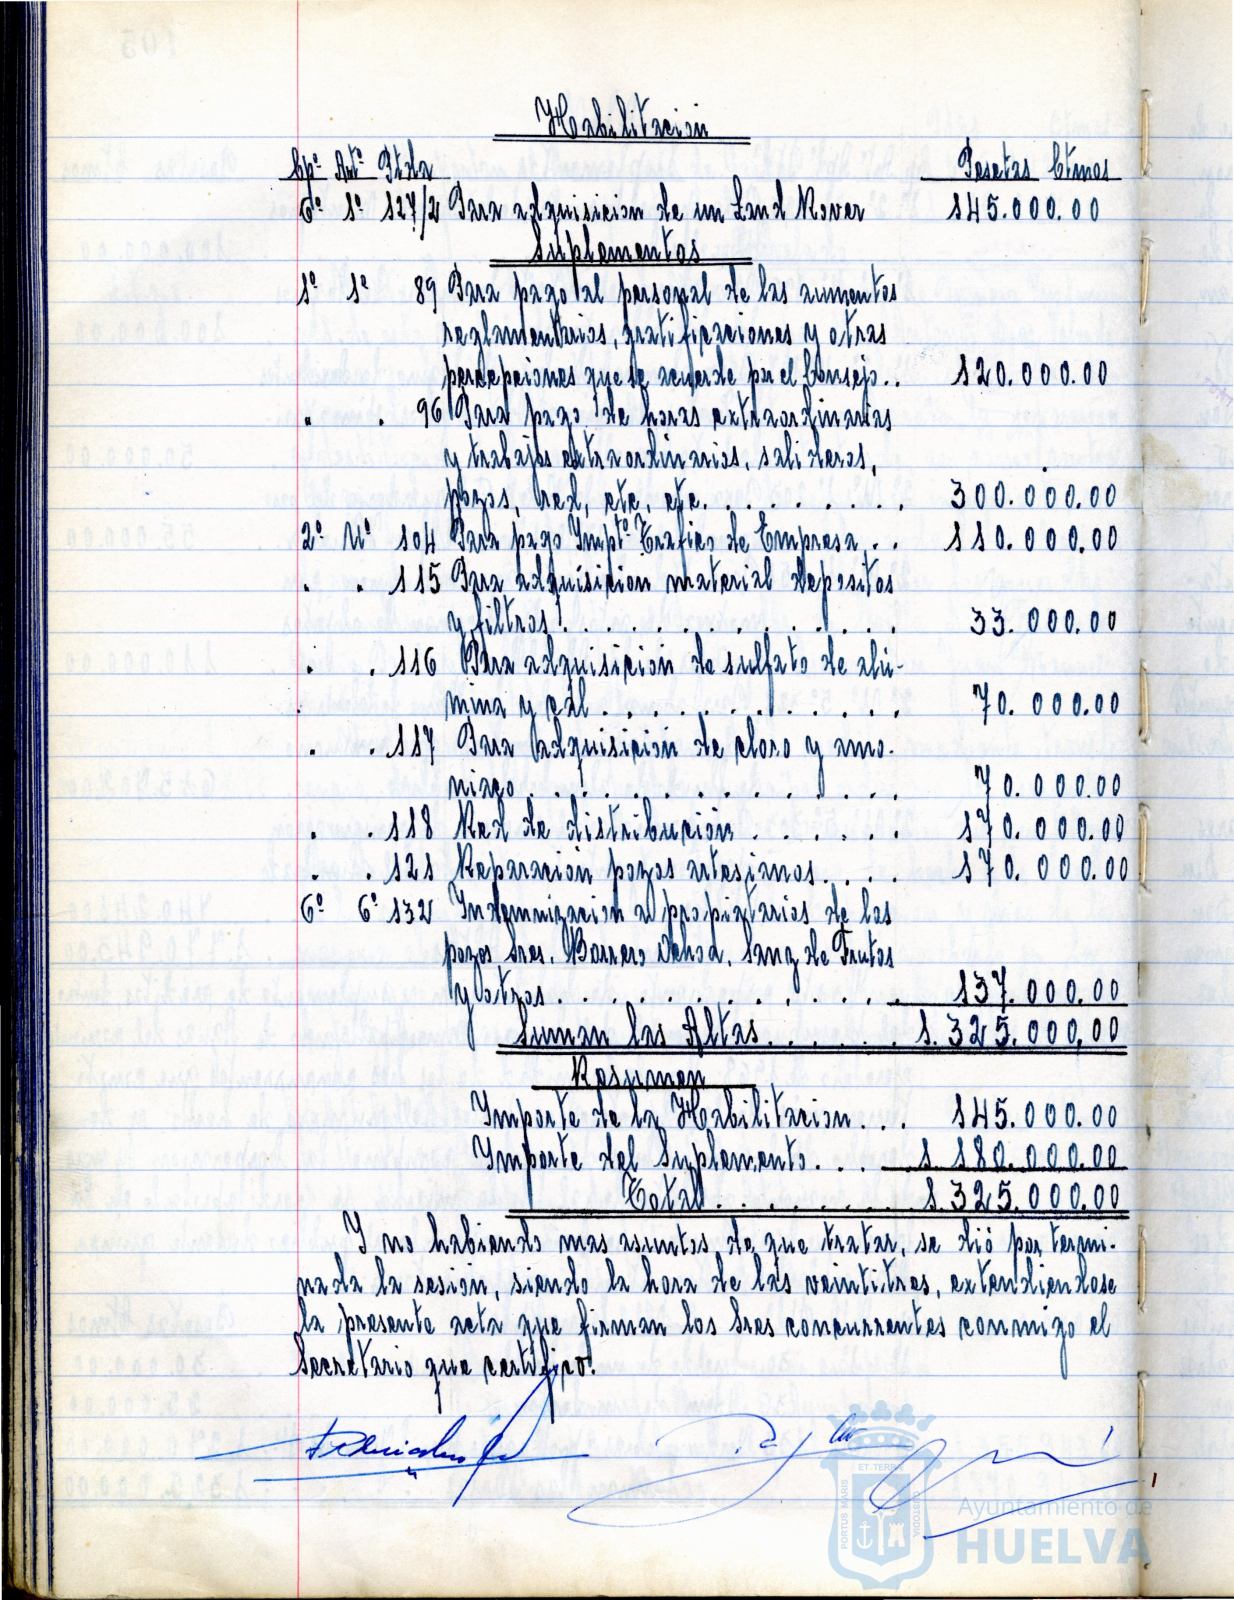 Habilitacion
Cpº Artº Ptda Pesetas Ctmos
6º 1º 127/2 Para adquisicion de un Land Rover 145.000.00
Suplementos
1º 1º 89 Para pago al personal de los aumentos
reglamentarios, gratificaciones y otras
percepciones que se acuerde por el Consejo.. 120.000.00
" . 96 Para pago de horas extraordinarias
y trabajos extraordinarios, salideros,
pozos, red, etc, etc. . . . . . . . . 300.000.00
2º Uº 104 Para pago Imptº Trafico de Empresa . . 110.000.00
. . 115 Para adquisicion material depositos
y filtros . . . . . . . . . . . . 33.000.00
. . 116 Para adquisicion de sulfato de alu-
mina y cal . . . . . . . . . . . 70.000.00
. . 117 Para adquisicion de cloro y amo-
niaco . . . . . . . . . . . . . 70.000.00
. . 118 Red de distribucion . . . . . . 170.000.00
. . 121 Reparacion pozos artesianos. . . . 170.000.00
6º 6º 132 Indemnizacion a propietarios de los
pozos Sres. Borrero Sanz de Frutos
y otros . . . . . . . . . . . . . 137.000.00
Suman las Altas. . . . . . 1.325.000,00
Resumen
Importe de la Habilitacion . . . 145.000.00
Importe del Suplemento. . . 1.180.000.00
Total . . . . . . . . . 1.325.000.00
Y no habiendo mas asuntos de que tratar, se dió por termi-
nada la sesión, siendo la hora de las veintitres, extendiendose
la presente acta que firman los Sres concurrentes conmigo el
Secretario que certifico.
ET TERRÆ
PORTUS MARIS
CUSTODIA
Ayuntamiento de
HUELVA